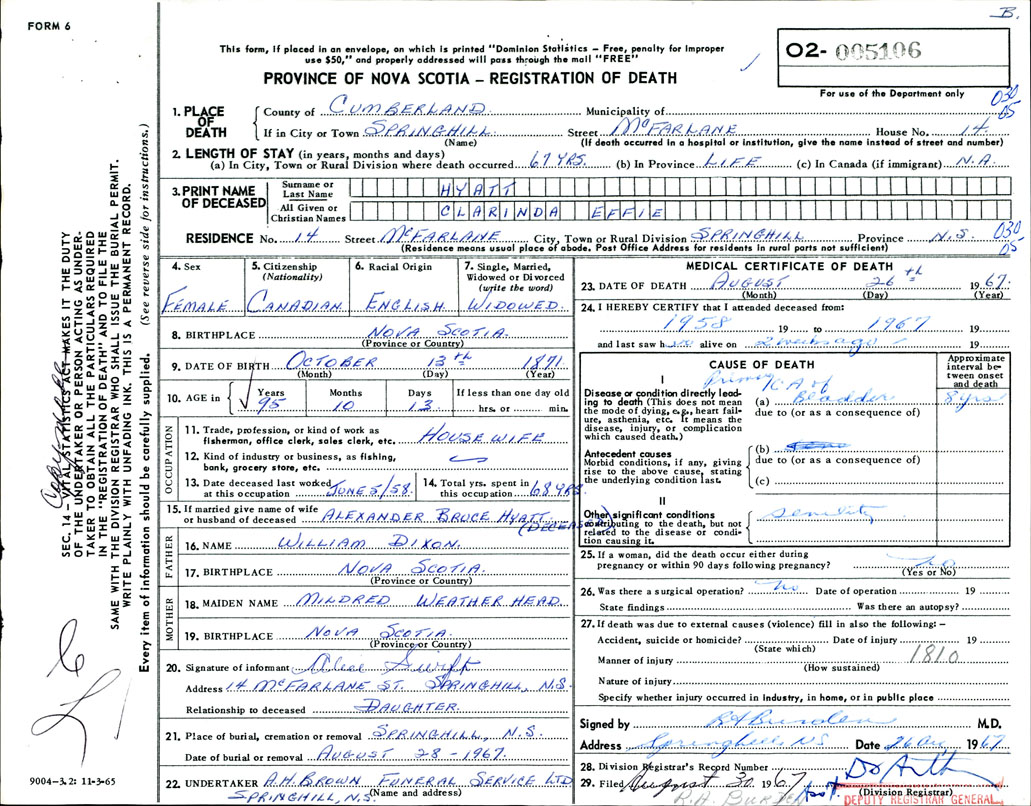 B.
FORM 6
This form, if placed in an envelope, on which is printed "Dominion Statistics – Free, penalty for improper
use $50," and properly addressed will pass through the mail "FREE"
O2- 005106
PROVINCE OF NOVA SCOTIA – REGISTRATION OF DEATH
For use of the Department only
030
05
1. PLACE OF DEATH
County of CUMBERLAND Municipality of
If in City or Town SPRINGHILL Street McFARLANE House No. 14
(Name) (If death occurred in a hospital or institution, give the name instead of street and number)
2. LENGTH OF STAY (in years, months and days)
(a) In City, Town or Rural Division where death occurred 67 YRS. (b) In Province LIFE (c) In Canada (if immigrant) N.A.
3. PRINT NAME OF DECEASED
Surname or Last Name HYATT
All Given or Christian Names CLARINDA EFFIE
RESIDENCE No. 14 Street McFARLANE City, Town or Rural Division SPRINGHILL Province N.S.
030
05
(Residence means usual place of abode. Post Office Address for residents in rural parts not sufficient)
4. Sex
FEMALE
5. Citizenship
(Nationality)
CANADIAN
6. Racial Origin
ENGLISH
7. Single, Married,
Widowed or Divorced
(write the word)
WIDOWED.
8. BIRTHPLACE NOVA SCOTIA.
(Province or Country)
9. DATE OF BIRTH OCTOBER 13th 1871
(Month) (Day) (Year)
10. AGE in Years 95 Months 10 Days 13 If less than one day old
hrs. or min.
OCCUPATION
11. Trade, profession, or kind of work as
fisherman, office clerk, sales clerk, etc. HOUSE WIFE
12. Kind of industry or business, as fishing,
bank, grocery store, etc.
13. Date deceased last worked
at this occupation JUNE 5/58
14. Total yrs. spent in
this occupation 68 YRS.
15. If married give name of wife
or husband of deceased ALEXANDER BRUCE HYATT
(DECEASED)
FATHER
16. NAME WILLIAM DIXON.
17. BIRTHPLACE NOVA SCOTIA.
(Province or Country)
MOTHER
18. MAIDEN NAME MILDRED WEATHER HEAD
19. BIRTHPLACE NOVA SCOTIA.
(Province or Country)
20. Signature of informant Alice Swift
Address 14 McFARLANE ST. SPRINGHILL, N.S.
Relationship to deceased DAUGHTER.
21. Place of burial, cremation or removal SPRINGHILL, N.S.
Date of burial or removal AUGUST 28 - 1967.
22. UNDERTAKER A.H. BROWN FUNERAL SERVICE LTD
SPRINGHILL, N.S. (Name and address)
MEDICAL CERTIFICATE OF DEATH
23. DATE OF DEATH AUGUST 26th 1967.
(Month) (Day) (Year)
24. I HEREBY CERTIFY that I attended deceased from:
1958 19 to 1967 19
and last saw her alive on 2 weeks ago 19
CAUSE OF DEATH
Approximate
interval between onset
and death
I
Disease or condition directly leading to death (This does not mean
the mode of dying, e.g., heart failure, asthenia, etc. It means the
disease, injury, or complication
which caused death.)
(a) Primary CA of Bladder 8 yrs
due to (or as a consequence of)
Antecedent causes
Morbid conditions, if any, giving
rise to the above cause, stating
the underlying condition last.
(b)
due to (or as a consequence of)
(c)
II
Other significant conditions
contributing to the death, but not
related to the disease or condition causing it.
senility
25. If a woman, did the death occur either during
pregnancy or within 90 days following pregnancy? no
(Yes or No)
26. Was there a surgical operation? no Date of operation 19
State findings Was there an autopsy?
27. If death was due to external causes (violence) fill in also the following: –
Accident, suicide or homicide? Date of injury 19
(State which)
Manner of injury 1810
(How sustained)
Nature of injury
Specify whether injury occurred in industry, in home, or in public place
Signed by RA Burden M.D.
Address Springhill NS Date 26 Aug 1967
28. Division Registrar's Record Number
29. Filed August 30 1967
(Division Registrar)
DEPUTY REGISTRAR GENERAL
SEC. 14 – VITAL STATISTICS ACT MAKES IT THE DUTY
OF THE UNDERTAKER OR PERSON ACTING AS UNDER-
TAKER TO OBTAIN ALL THE PARTICULARS REQUIRED
IN THE "REGISTRATION OF DEATH" AND TO FILE THE
SAME WITH THE DIVISION REGISTRAR WHO SHALL ISSUE THE BURIAL PERMIT.
WRITE PLAINLY WITH UNFADING INK. THIS IS A PERMANENT RECORD.
Every item of information should be carefully supplied. (See reverse side for instructions.)
9004–3.2: 11-3-65